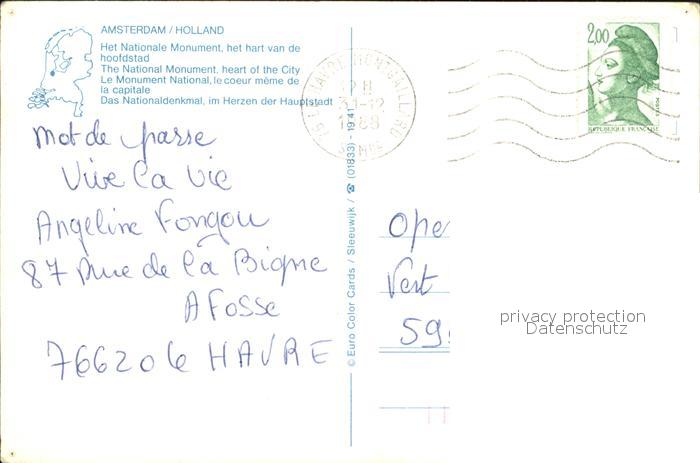 AMSTERDAM / HOLLAND
Het Nationale Monument, het hart van de
hoofdstad
The National Monument, heart of the City
Le Monument National, le coeur même de
la capitale
Das Nationaldenkmal, im Herzen der Hauptstadt
Mot de passe
Vive la vie
Angeline Fongou
87 Rue de la Bigne
A Fosse
76620 le HAVRE
© Euro Color Cards / Sleeuwijk / ☎ (01833) - 1941
12 H
31-12
1988
2,00
REPUBLIQUE FRANÇAISE
Ope
Vert
59
privacy protection
Datenschutz